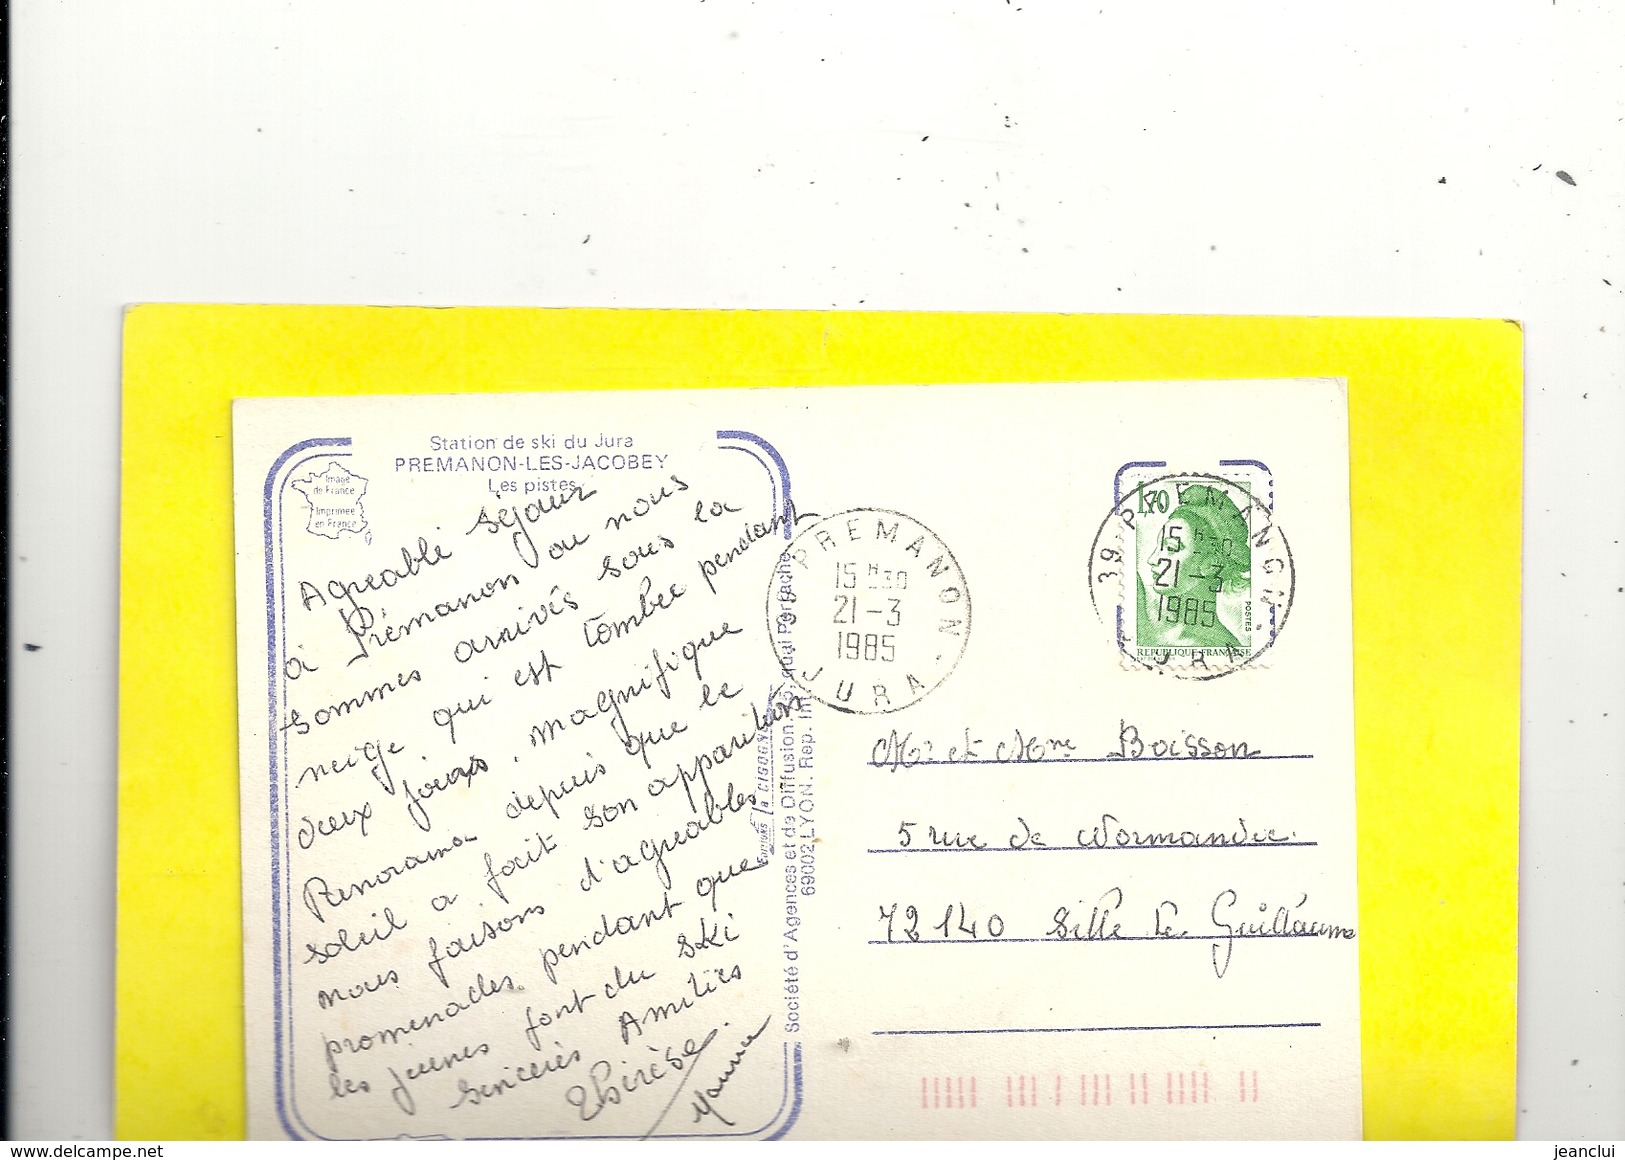 Station de ski du Jura
PREMANON-LES-JACOBEY
Les pistes
Image
de France
Imprimée
en France
Agreable séjour
à Prémanon ou nous
sommes arrivés sous la
neige qui est tombee pendant
deux jours, magnifique
Panorama depuis que le
soleil a fait son apparition
nous faisons d'agreables
promenades pendant que
les jeunes font du ski
sincères Amitiés
Thérèse
Maurice
Editions "la CIGOGNE"
Société d'Agences et de Diffusion. quai Perrache
69002 LYON. Rep. Int.
39 PREMANON
15 H30
21-3
1985
JURA
1,70
POSTES
REPUBLIQUE FRANÇAISE
39 PREMANON
15 H30
21-3
1985
JURA
Mr et Mme Boisson
5 rue de Normandie.
72140 Sille le Guillaume
delcampe.net
jeanclui